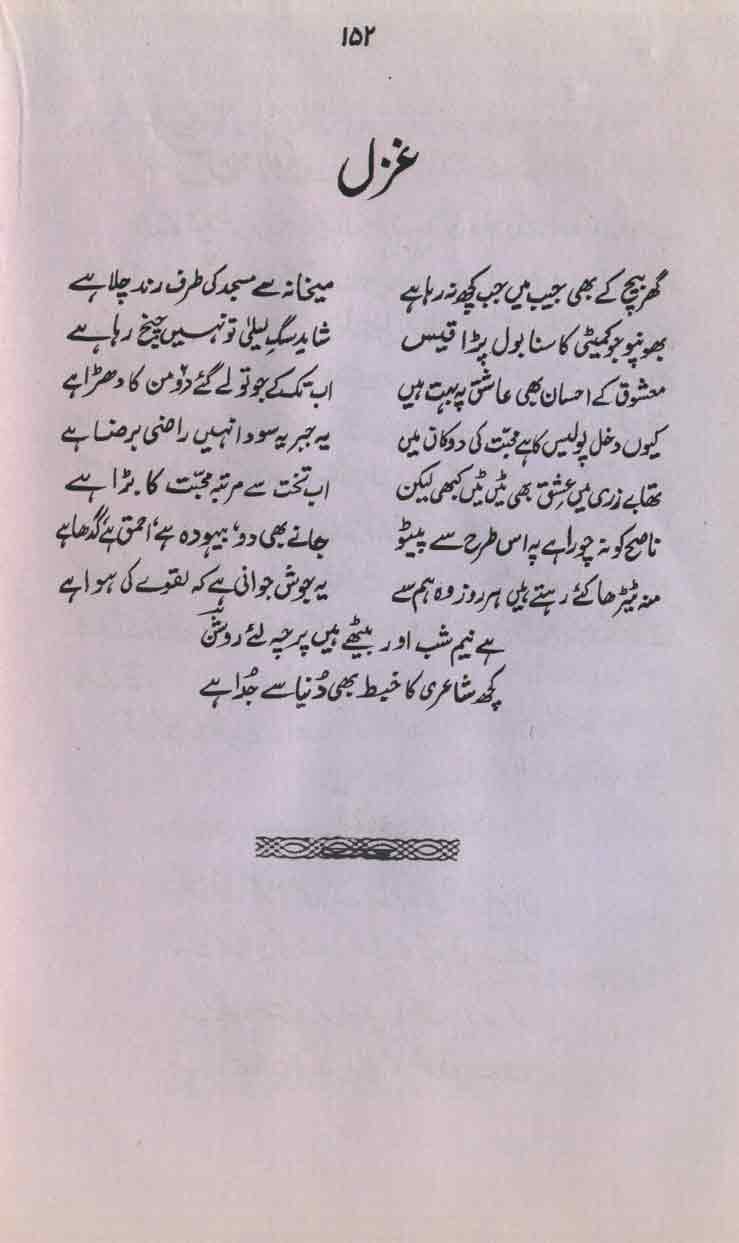 ۱۵۲
غزل
گھر بیچ کے بھی جیب میں جب کچھ نہ رہا ہے میخانہ سے مسجد کی طرف رند چلا ہے
بھونپو جو کمیٹی کا سنا بول پڑا قیس شاید سگِ لیلیٰ تو نہیں چیخ رہا ہے
معشوق کے احسان بھی عاشق پہ بہت ہیں اب تک کے جو تولے گئے دو من کا دھڑا ہے
کیوں دخل پولیس کا ہے محبت کی دوکان میں یہ جبریہ سودا نہیں راضی برضا ہے
تھا بے زری میں عشق بھی ٹیں ٹیں کبھی لیکن اب تخت سے مرتبہ محبّت کا بڑا ہے
ناصح کو نہ چوراہے پہ اس طرح سے پیٹو جانے بھی دو، بیہودہ ہے، احمق ہے، گدھا ہے
منہ ٹیڑھا کئے رہتے ہیں ہر روز وہ ہم سے یہ جوش جوانی ہے کہ لقوے کی ہوا ہے
ہے نیم شب اور بیٹھے ہیں پرچہ لئے روشن
کچھ شاعری کا خبط بھی دُنیا سے جُدا ہے